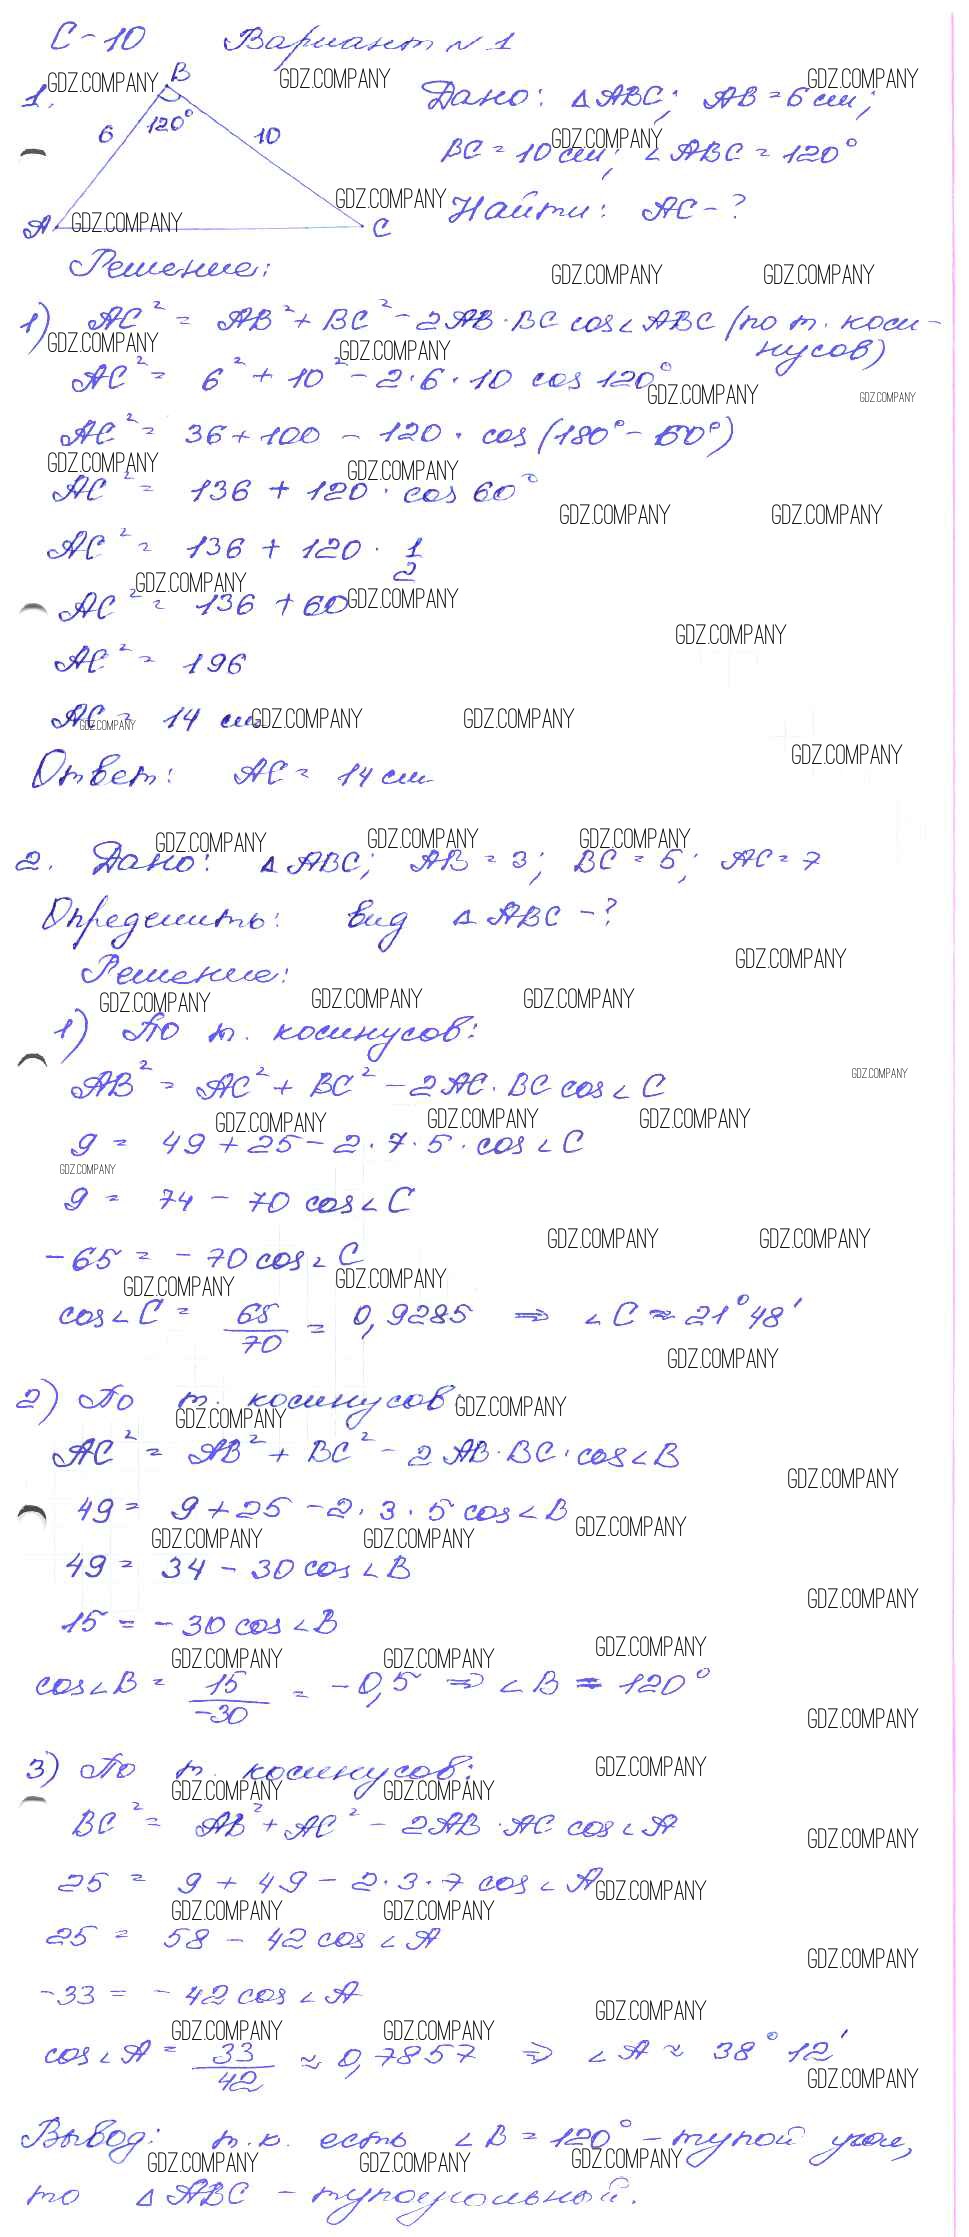 С-10 Вариант № 1
1. B
6 120° 10
A C
Дано: △ABC; AB = 6 см;
BC = 10 см; ∠ABC = 120°
Найти: AC - ?
Решение:
1) AC² = AB² + BC² - 2AB · BC cos∠ABC (по т. коси-
нусов)
AC² = 6² + 10² - 2 · 6 · 10 cos 120°
AC² = 36 + 100 - 120 · cos (180° - 60°)
AC² = 136 + 120 · cos 60°
AC² = 136 + 120 · 1/2
AC² = 136 + 60
AC² = 196
AC = 14 см
Ответ: AC = 14 см
2. Дано: △ABC; AB = 3; BC = 5; AC = 7
Определить: вид △ABC - ?
Решение:
1) По т. косинусов:
AB² = AC² + BC² - 2AC · BC cos∠C
9 = 49 + 25 - 2 · 7 · 5 · cos∠C
9 = 74 - 70 cos∠C
-65 = -70 cos∠C
cos∠C = 65/70 = 0,9285 ⇒ ∠C ≈ 21°48'
2) По т. косинусов
AC² = AB² + BC² - 2AB · BC · cos∠B
49 = 9 + 25 - 2 · 3 · 5 cos∠B
49 = 34 - 30 cos∠B
15 = -30 cos∠B
cos∠B = 15/-30 = -0,5 ⇒ ∠B = 120°
3) По т. косинусов:
BC² = AB² + AC² - 2AB · AC cos∠A
25 = 9 + 49 - 2 · 3 · 7 cos∠A
25 = 58 - 42 cos∠A
-33 = -42 cos∠A
cos∠A = 33/42 ≈ 0,7857 ⇒ ∠A ≈ 38°12'
Вывод: т.к. есть ∠B = 120° - тупой угол,
то △ABC - тупоугольный.
GDZ.COMPANY